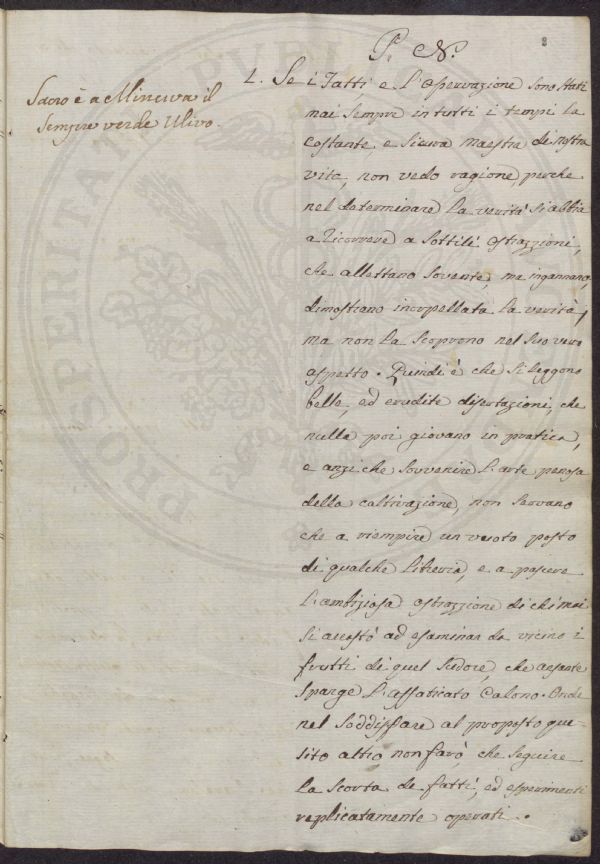 8
P. N.
Sacro è a Minerva il
sempre verde Ulivo.
1. Se i Fatti e l'Osservazione sono stati
mai sempre in tutti i tempi la
costante, e sicura maestra di nostra
vita, non vedo ragione, perche
nel determinare la verità si abbia
a ricorrere a sottili astrazzioni,
che allettano sovente, ma ingannano,
dimostrano incorpellata la verità,
ma non la scoprono nel suo vero
aspetto. Quindi è che si leggono
belle, ed erudite disertazioni, che
nulla poi giovano in pratica,
e anzi che sovvenire l'arte penosa
della coltivazione, non servano
che a riempire un vuoto posto
di qualche libreria, e a pascere
l'ambiziosa astrazzione di chi mai
si accostò ad esaminar da vicino i
frutti di quel sudore, che ansante
sparge l'affaticato Colono. Onde
nel soddisfare al proposto que-
sito altro non farò, che seguire
la scorta de fatti, ed esperimenti
replicatamente operati.
PROSPERITATI PVBL